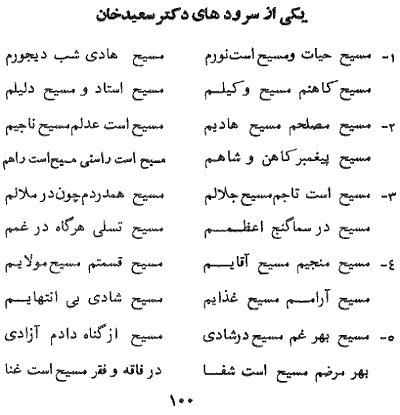 یکی از سرود های دکتر سعیدخان
۱- مسیح حیات ومسیح است نورم مسیح هادی شب دیجورم
مسیح کاهنم مسیح وکیلم مسیح استاد و مسیح دلیلم
۲- مسیح مصلحم مسیح هادیم مسیح است عدلم مسیح ناجیم
مسیح پیغمبر کاهن و شاهم مسیح است راستی مسیح است راهم
۳- مسیح است تاجم مسیح جلالم مسیح همدردم چون در ملالم
مسیح در سما گنج اعظمم مسیح تسلی هرگاه در غمم
٤- مسیح منجیم مسیح آقایم مسیح قسمتم مسیح مولایم
مسیح آرامم مسیح غذایم مسیح شادی بی انتهایم
۵- مسیح بهر غم مسیح در شادی مسیح از گناه دادم آزادی
بهر مرضم مسیح است شفا در فاقه و فقر مسیح است غنا
۱۰۰